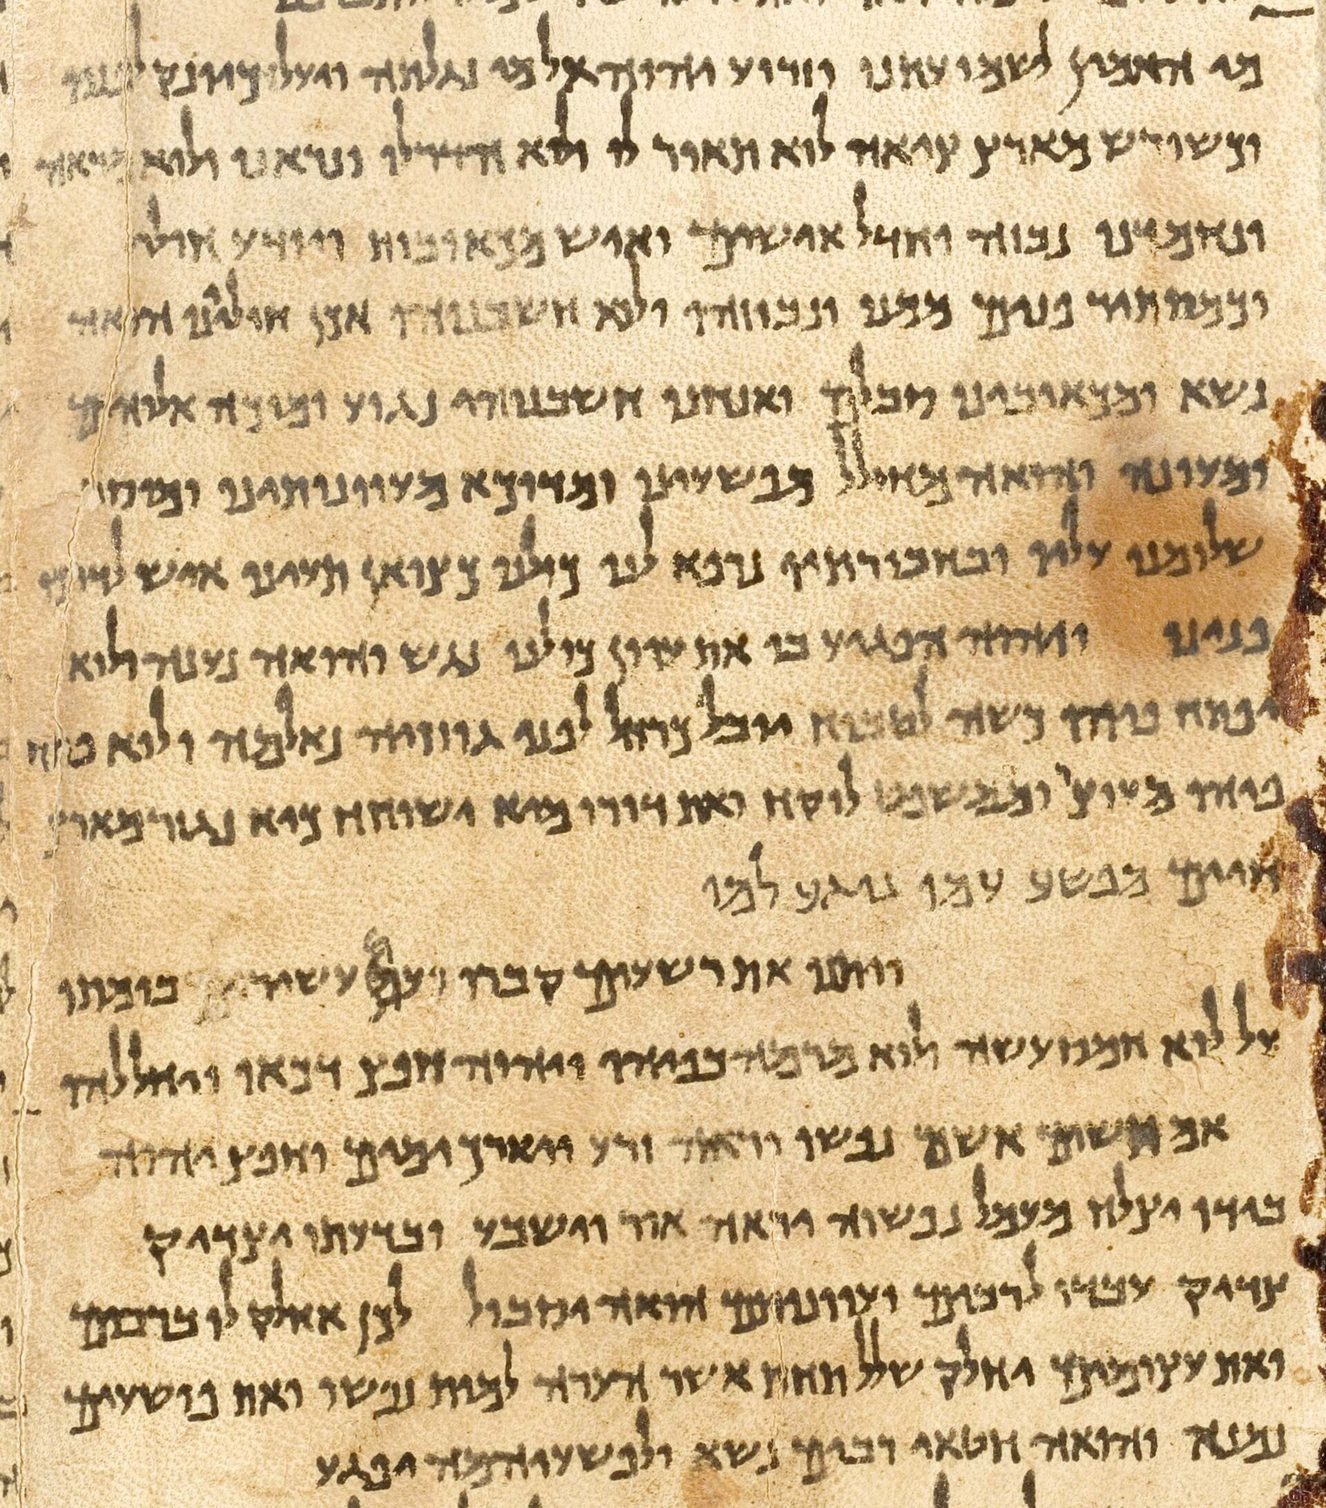 מי האמין לשמועתנו וזרוע יהוה אל מי נגלתה ויעל כיונק לפניו
וכשורש מארץ ציאה לוא תאור לו ולא הדר לו ונראנו ולוא מראה
ונחמדנו נבזה וחדל אישים ואיש מכאובות ויודע חולי
וכמסתיר פנים ממנו ונבוזהו ולא חשבנוהו אכן חוליינו הואה
נשא ומכאובינו סבלם ואנחנו חשבנוהו נגוע ומוכה אלוהים
ומעונה והואה מחולל מפשעינו ומדוכא מעוונותינו ומוסר
שלומנו עליו ובחבורתיו נרפא לנו כולנו כצואן תעינו איש לדרכו
פנינו ויהוה הפגיע בו את עוון כולנו נגש והואה נענה ולוא
יפתח פיהו כשה לטבוח יובל כרחל לפני גוזזיה נאלמה ולוא פתח
פיהו מעוצר וממשפט לוקח ואת דורו מיא ישוחח כיא נגזר מארץ
חיים מפשע עמו נוגע למו
ויתנו את רשעים קברו ועם בומתו
על לוא חמס עשה ולוא מרמה בפיהו ויהוה חפץ דכאו ויחללהו
אם תשים אשם נפשו יראה זרע ויארך ימים וחפץ יהוה
בידו יצלח מעמל נפשוה יראה אור וישבע ובדעתו יצדיק
צדיק עבדו לרבים ועוונותם הואה יסבול לכן אחלק לו ברבים
ואת עצומים יחלק שלל תחת אשר הערה למות נפשו ואת פושעים
נמנא והואה חטאי רבים נשא ולפשעיהמה יפגע